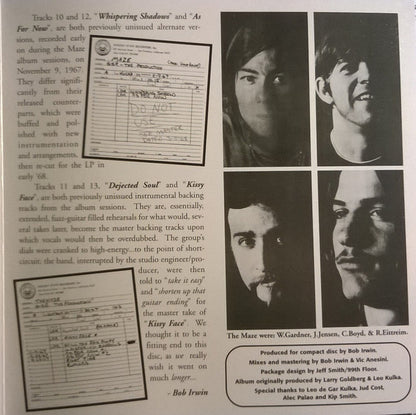 Tracks 10 and 12, "Whispering Shadows" and "As
For Now", are both previously unissued alternate ver-
sions, recorded early
on during the Maze
album sessions, on
November 9, 1967.
They differ signifi-
cantly from their
released counter-
parts, which were
buffed and pol-
ished with new
instrumentation
and arrangements,
then re-cut for the LP in
early '68.
MAZE
DO NOT
USE
Tracks 11 and 13, "Dejected Soul" and "Kissy
Face", are both previously unissued instrumental backing
tracks from the album sessions. They are, essentially,
extended, fuzz-guitar filled rehearsals for what would, sev-
eral takes later, become the master backing tracks upon
which vocals would then be overdubbed. The group's
dials were cranked to high-energy...to the point of short-
circuit; the band, interrupted by the studio engineer/pro-
ducer, were then
told to "take it easy"
and "shorten up that
guitar ending" for
the master take of
"Kissy Face". We
thought it to be a
fitting end to this
disc, as we really
wish it went on
much longer...
- Bob Irwin
The Maze were: W.Gardner, J.Jensen, C.Boyd, & R.Eittreim.
Produced for compact disc by Bob Irwin.
Mixes and mastering by Bob Irwin & Vic Anesini.
Package design by Jeff Smith/99th Floor.
Album originally produced by Larry Goldberg & Leo Kulka.
Special thanks to Leo de Gar Kulka, Jud Cost,
Alec Palao and Kip Smith.